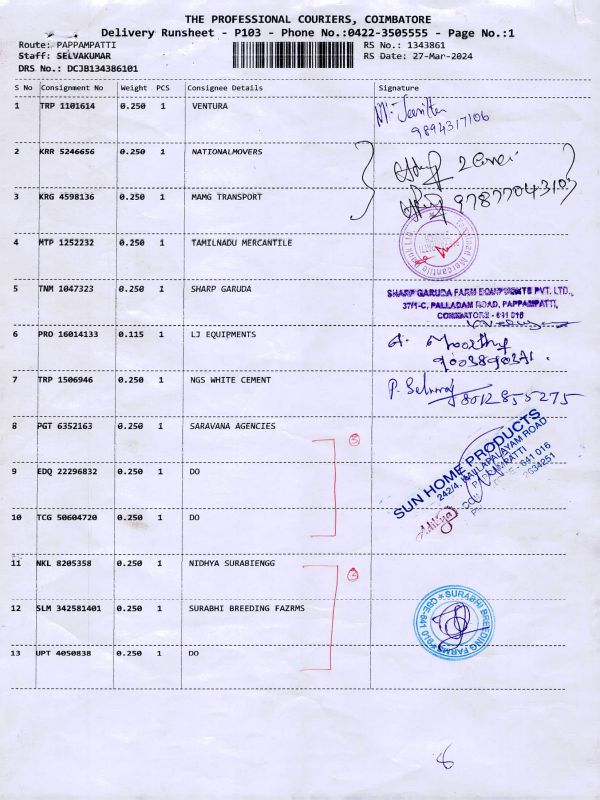 THE PROFESSIONAL COURIERS, COIMBATORE
Delivery Runsheet - P103 - Phone No.:0422-3505555 - Page No.:1
Route: PAPPAMPATTI RS No.: 1343861
Staff: SELVAKUMAR RS Date: 27-Mar-2024
DRS No.: DCJB134386101
S No Consignment No Weight PCS Consignee Details Signature
1 TRP 1101614 0.250 1 VENTURA
9894317106
2 KRR 5246656 0.250 1 NATIONALMOVERS
3 KRG 4598136 0.250 1 MAMG TRANSPORT
4 MTP 1252232 0.250 1 TAMILNADU MERCANTILE
Tamilnad Mercantile Bank Ltd
5 TNM 1047323 0.250 1 SHARP GARUDA
SHARP GARUDA FARM EQUIPMENTS PVT. LTD.,
37/1-C, PALLADAM ROAD, PAPPAMPATTI,
COIMBATORE - 641 016
6 PRO 16014133 0.115 1 LJ EQUIPMENTS
A. Moorthy
9003890371.
7 TRP 1506946 0.250 1 NGS WHITE CEMENT
8012855275
8 PGT 6352163 0.250 1 SARAVANA AGENCIES
SUN HOME PRODUCTS
9 EDQ 22296832 0.250 1 DO
10 TCG 50604720 0.250 1 DO
11 NKL 8205358 0.250 1 NIDHYA SURABIENGG
12 SLM 342581401 0.250 1 SURABHI BREEDING FAZRMS
SURABHI BREEDING FARMS
13 UPT 4050838 0.250 1 DO